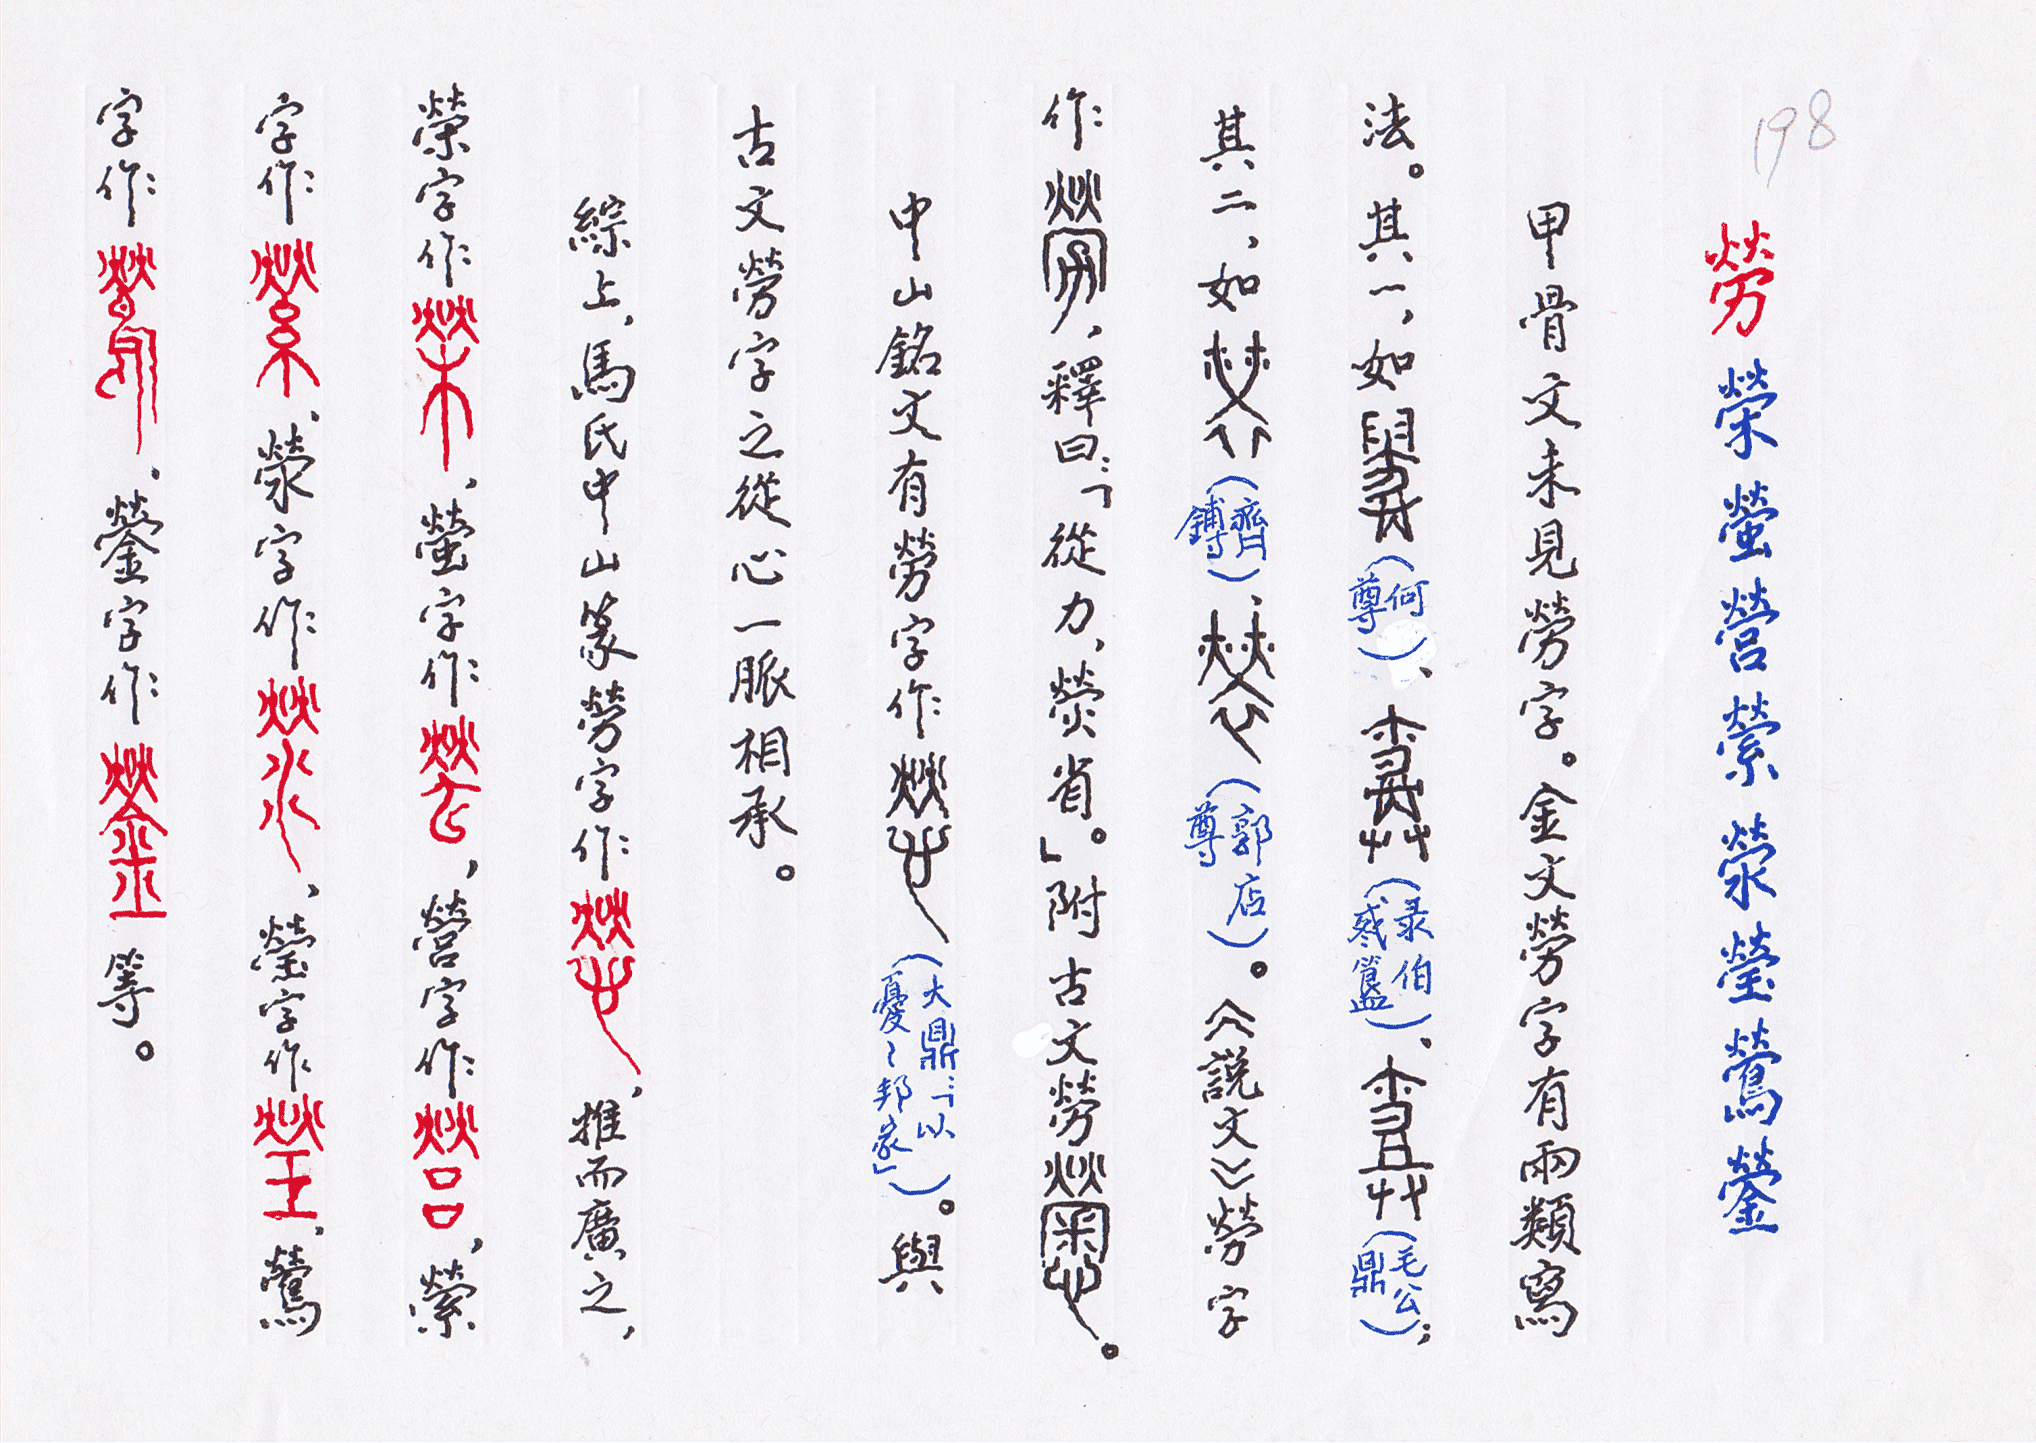 198
勞 榮 螢 營 縈 滎 瑩 鶯 鎣
甲骨文未見勞字。金文勞字有兩類寫
法。其一,如(何尊)、(彔伯㦰簋)、(毛公鼎);
其二,如(齊鎛)、(郭店尊)。《說文》勞字
作,釋曰:「從力,熒省。」附古文勞。
中山銘文有勞字作(大鼎:「以憂〻邦家」)。與
古文勞字之從心一脈相承。
綜上,馬氏中山篆勞字作,推而廣之,
榮字作,螢字作,營字作,縈
字作,滎字作,瑩字作,鶯
字作,鎣字作等。